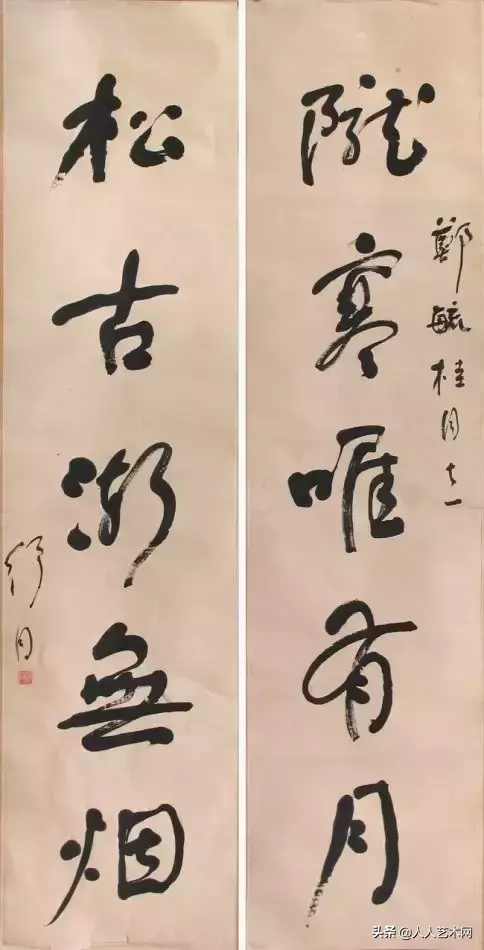 陇寒唯有月
鄭毓桂同志
松古渐無烟
舒同
头条 @人人艺术网